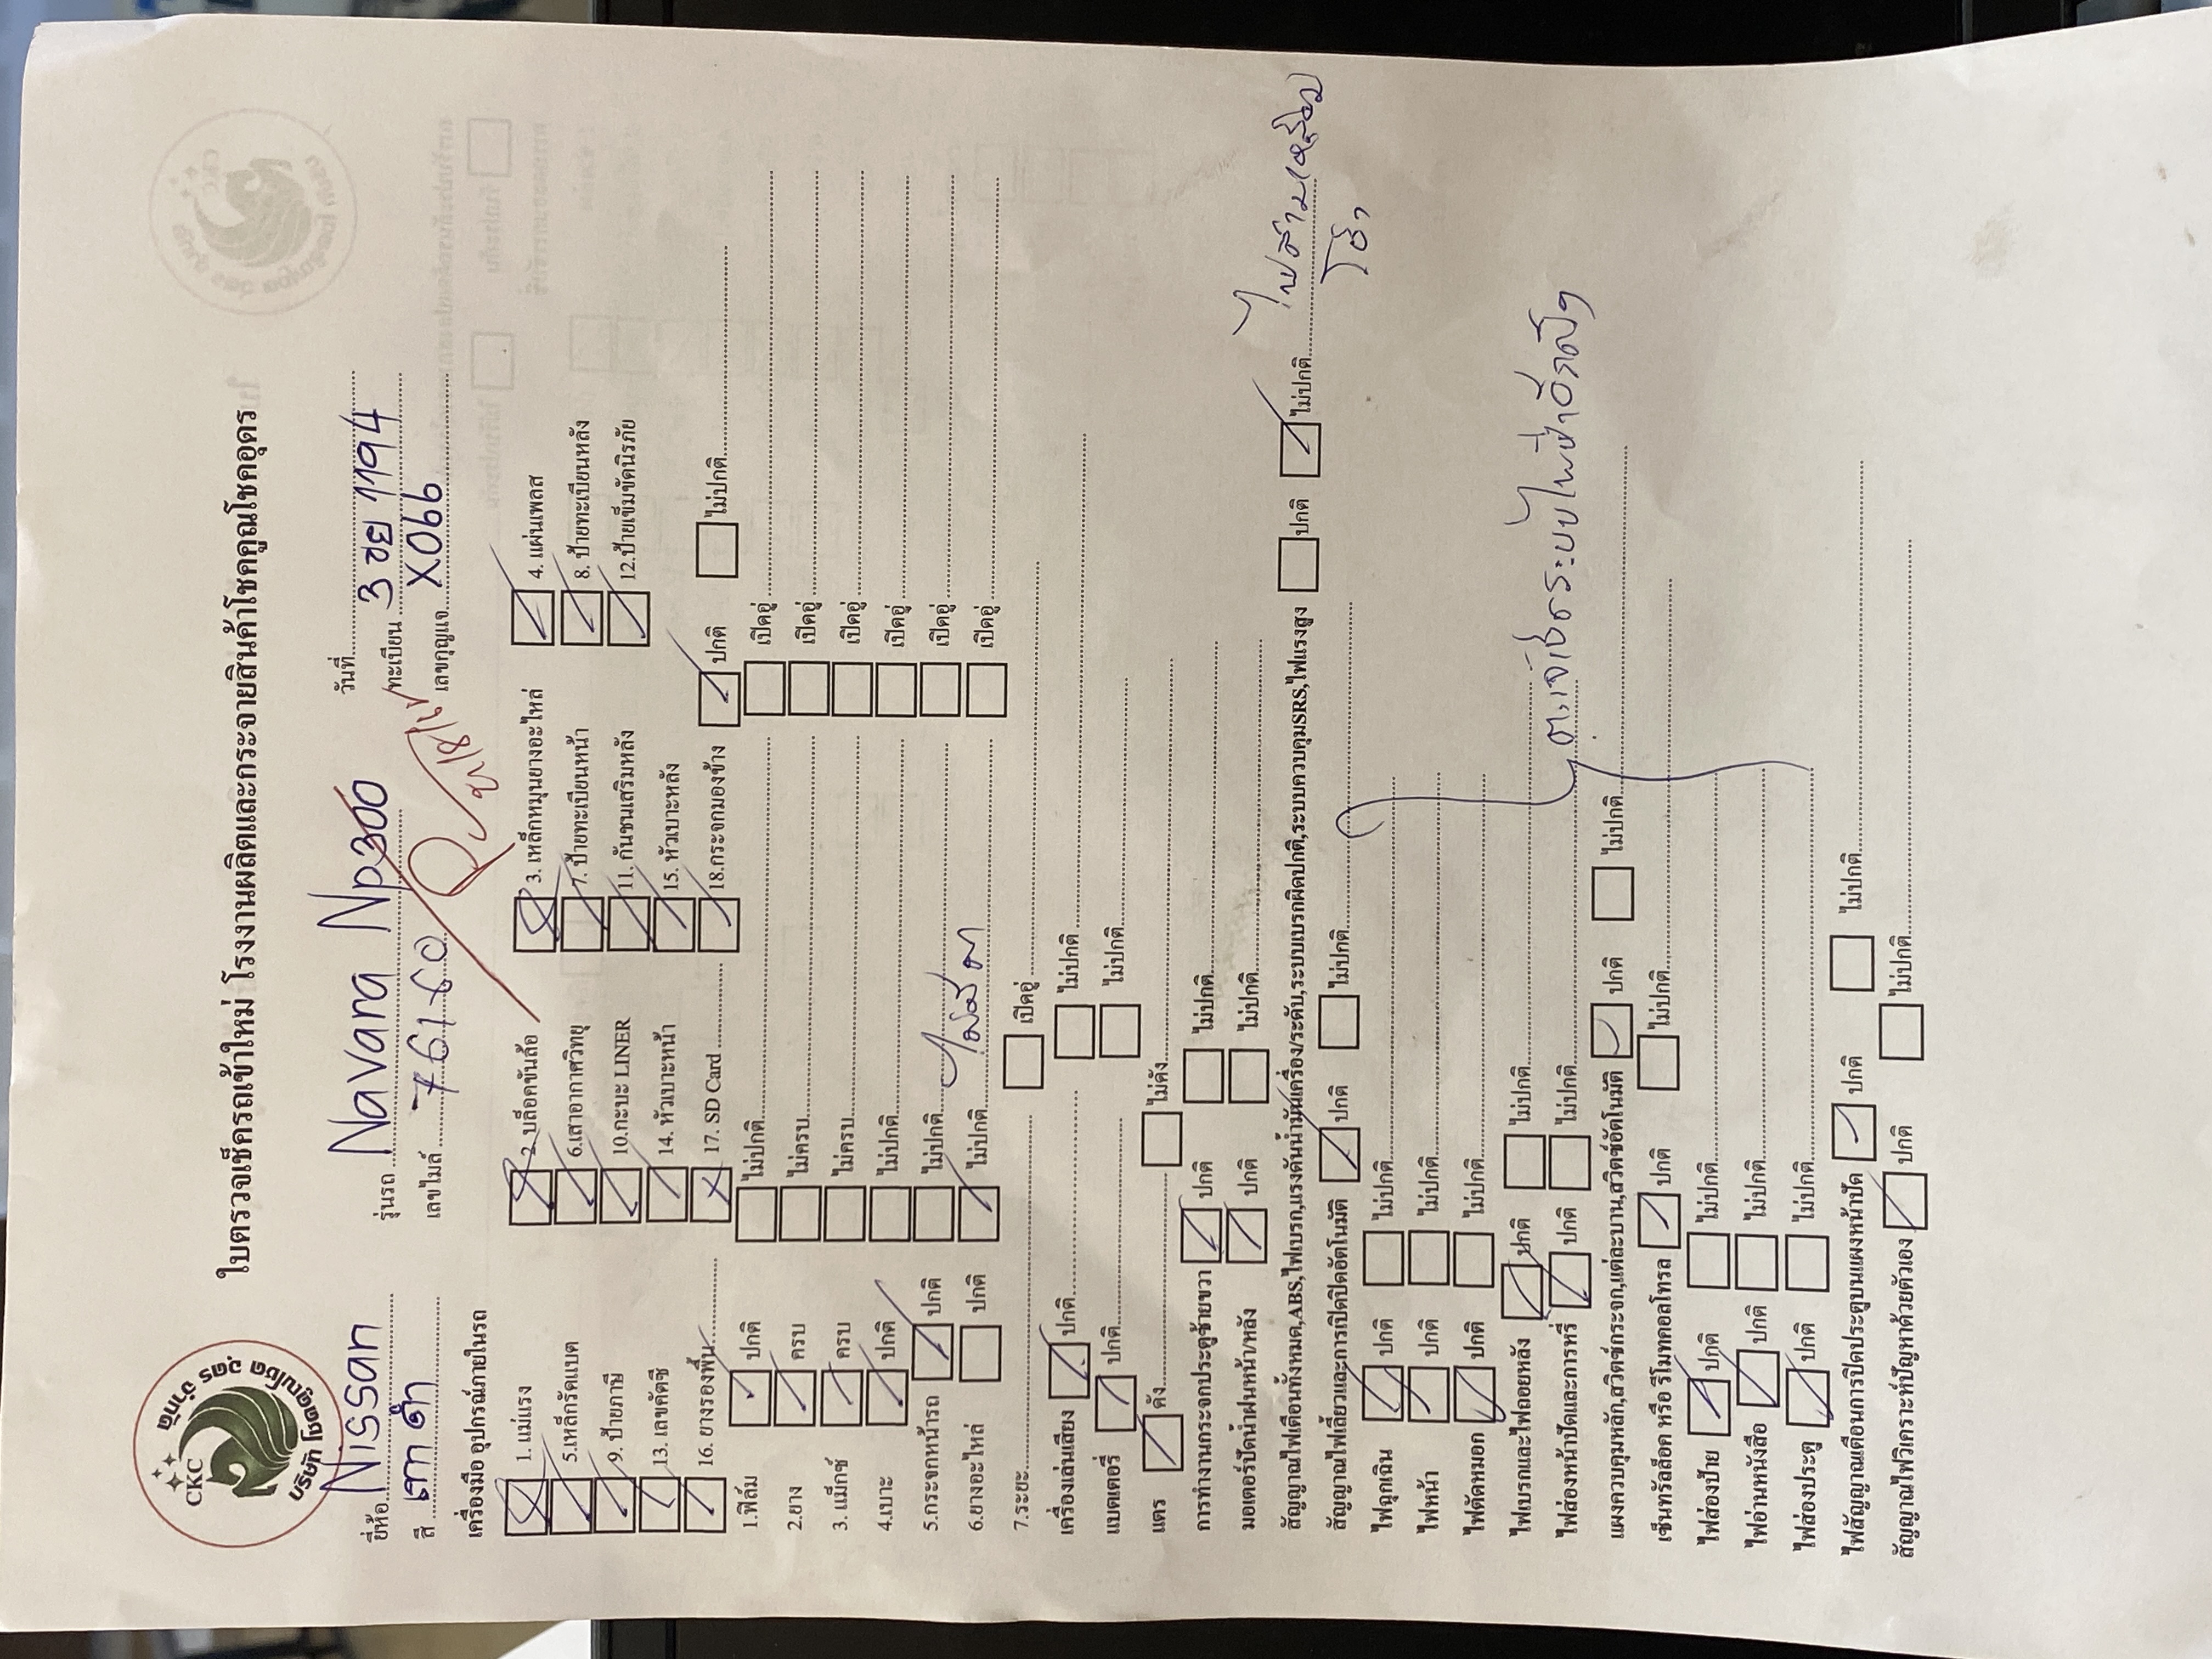 CKC
บริษัท โชคคูณโชค อุดร จำกัด
ใบตรวจเช็ครถเข้าใหม่ โรงงานผลิตและกระจายสินค้าโชคคูณโชคอุดร
ยี่ห้อ Nissan รุ่นรถ Navara Np300 วันที่
สี เทาดำ เลขไมล์ 76160 ทะเบียน 3 ขย 1194
เลขกุญแจ X066
เครื่องมือ อุปกรณ์ภายในรถ
1. แม่แรง 2. บล็อคขันล้อ 3. เหล็กหมุนยางอะไหล่ 4. แผ่นเพลส
5.เหล็กรัดแบต 6.เสาอากาศวิทยุ 7. ป้ายทะเบียนหน้า 8. ป้ายทะเบียนหลัง
9. ป้ายภาษี 10.กะบะ LINER 11. กันชนเสริมหลัง 12.ป้ายเข็มขัดนิรภัย
13. เลขคัดซี 14. หัวเบาะหน้า 15. หัวเบาะหลัง
16. ยางรองพื้น 17. SD Card 18.กระจกมองข้าง ปกติ ไม่ปกติ
1.ฟิล์ม ปกติ ไม่ปกติ เปิดอู่
2.ยาง ครบ ไม่ครบ เปิดอู่
3. แม็กซ์ ครบ ไม่ครบ เปิดอู่
4.เบาะ ปกติ ไม่ปกติ เปิดอู่
5.กระจกหน้ารถ ปกติ ไม่ปกติ เปิดอู่
6.ยางอะไหล่ ปกติ ไม่ปกติ เปิดอู่
7.ระยะ เปิดอู่
เครื่องเล่นเสียง ปกติ ไม่ปกติ
แบตเตอรี่ ปกติ ไม่ปกติ
แตร ดัง ไม่ดัง
การทำงานกระจกประตูซ้ายขวา ปกติ ไม่ปกติ
มอเตอร์ปัดน้ำฝนหน้า/หลัง ปกติ ไม่ปกติ
สัญญาณไฟเตือนทั้งหมด,ABS,ไฟเบรก,แรงดันน้ำมันเครื่อง/ระดับ,ระบบเบรกผิดปกติ,ระบบควบคุมSRS,ไฟแรงสูง ปกติ ไม่ปกติ
สัญญาณไฟเลี้ยวและการเปิดปิดอัตโนมัติ ปกติ ไม่ปกติ
ไฟฉุกเฉิน ปกติ ไม่ปกติ
ไฟหน้า ปกติ ไม่ปกติ
ไฟตัดหมอก ปกติ ไม่ปกติ
ไฟเบรกและไฟถอยหลัง ปกติ ไม่ปกติ
ไฟส่องหน้าปัดและการหรี่ ปกติ ไม่ปกติ
แผงควบคุมหลัก,สวิตซ์กระจก,แต่ละบาน,สวิตซ์อัตโนมัติ ปกติ ไม่ปกติ
เซ็นทรัลล็อค หรือ รีโมทคอลโทรล ปกติ ไม่ปกติ
ไฟส่องป้าย ปกติ ไม่ปกติ
ไฟอ่านหนังสือ ปกติ ไม่ปกติ
ไฟส่องประตู ปกติ ไม่ปกติ
ไฟสัญญาณเตือนการปิดประตูบนแผงหน้าปัด ปกติ ไม่ปกติ
สัญญาณไฟวิเคราะห์ปัญหาด้วยตัวเอง ปกติ ไม่ปกติ